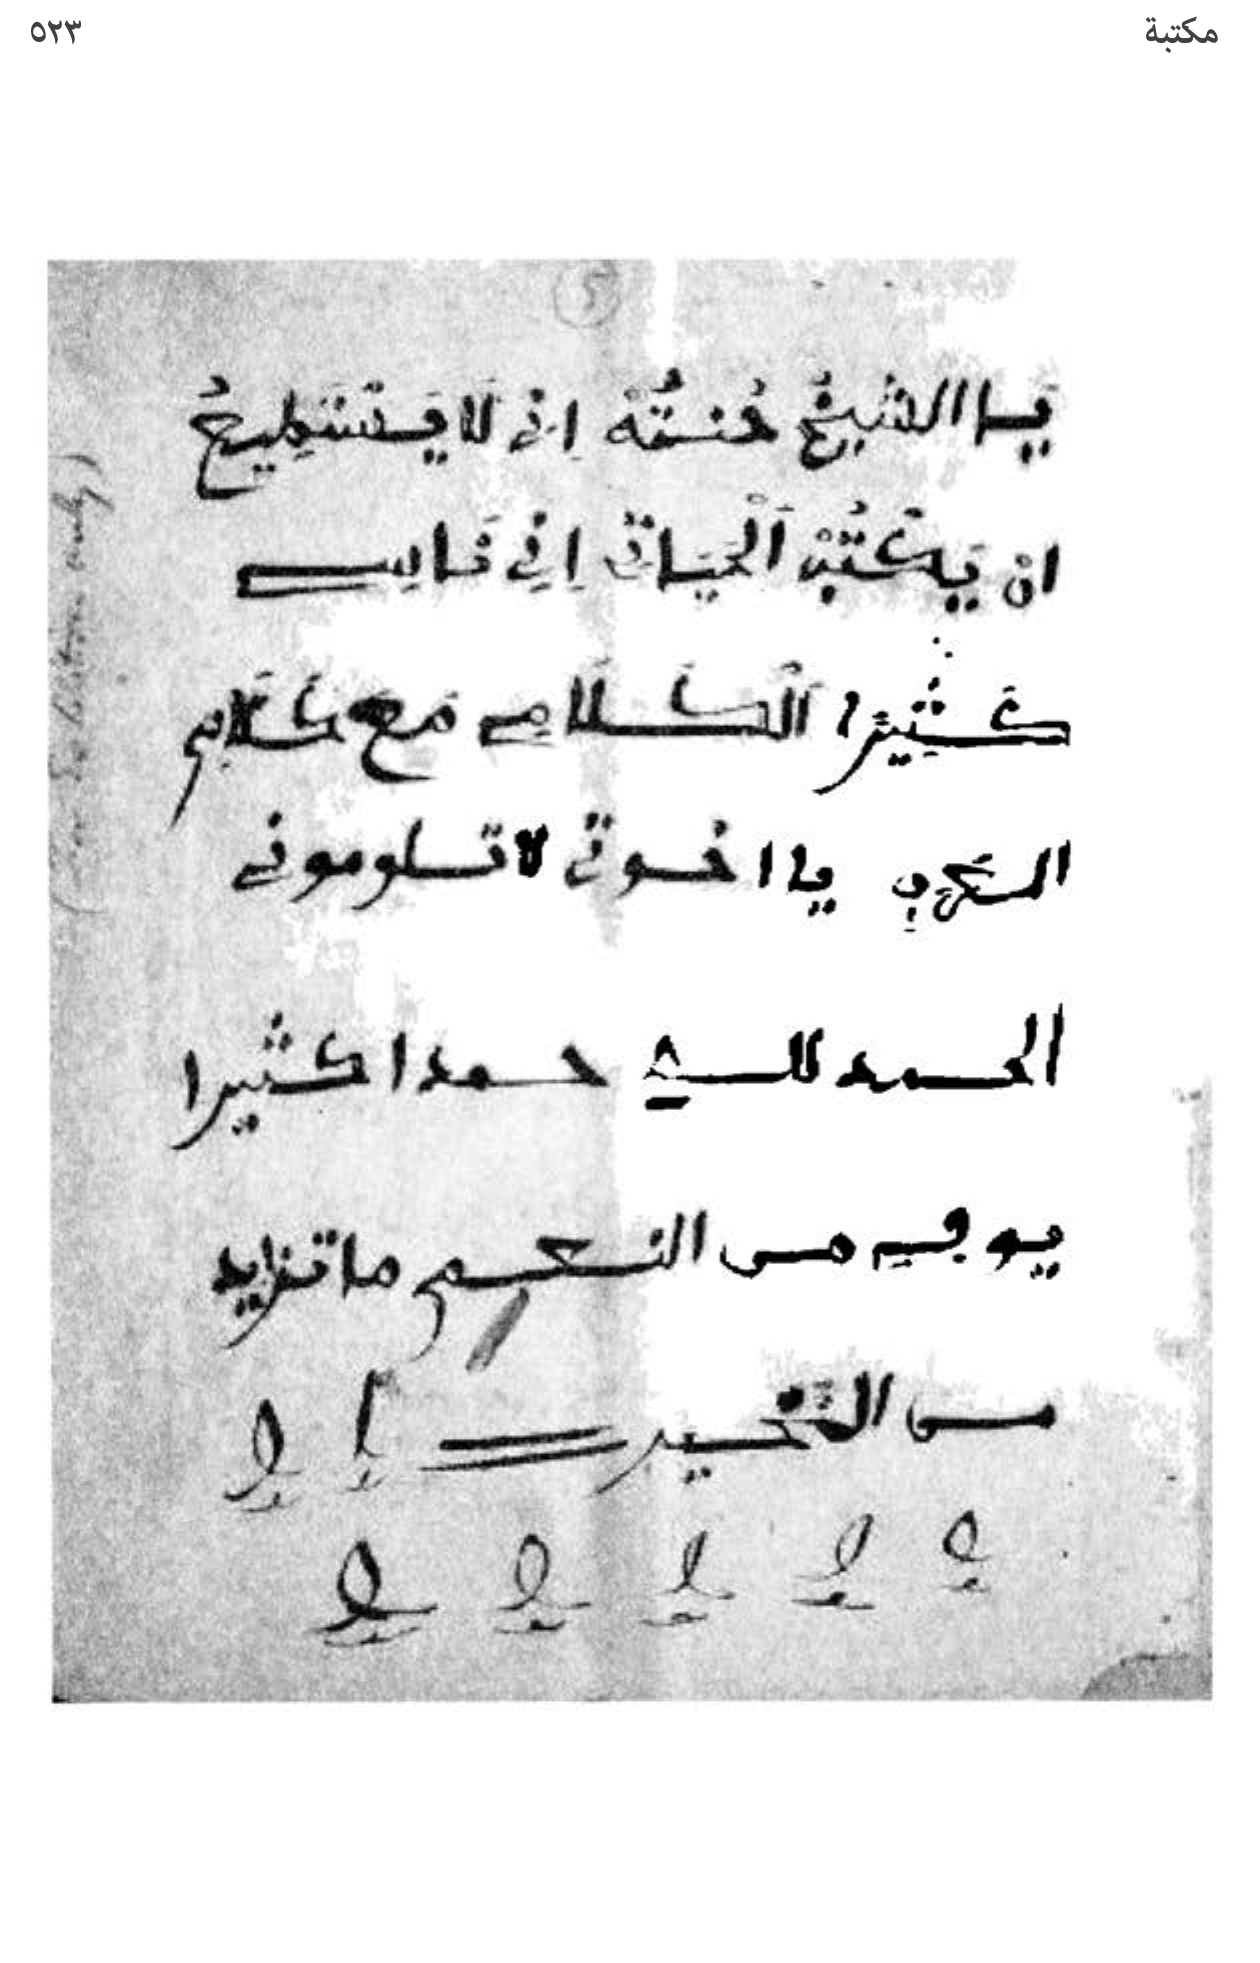 مكتبة
٥٢٣
5
يَا الشَّيْخُ هُنتُهْ اِنِي لَا يَسْتَطِيعُ
انْ يَكْتُبْ اَلْحَيَاتِي اِنِي نَاسِي
كَثِيرًا اَلْكَلَامِي مَعَ كَلَامِ
العرب يا اخوتي لا تلوموني
الحمد للــه حمدا كثيرا
يوفيه من النعيم ما تزايد
من الخير